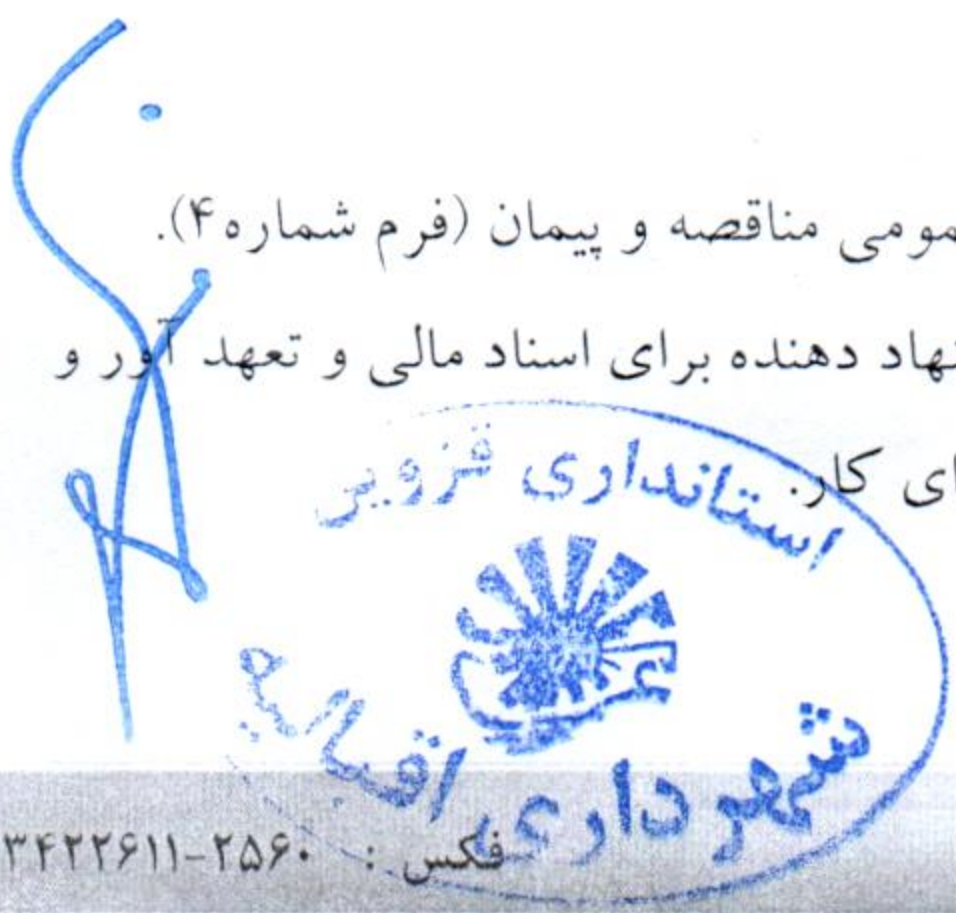 مومی مناقصه و پیمان (فرم شماره ۴).
نهاد دهنده برای اسناد مالی و تعهد آور و
ای کار.
استانداری قزوین
شهرداری اقبالیه
فکس : ۲۵۶۰-۳۴۲۲۶۱۱